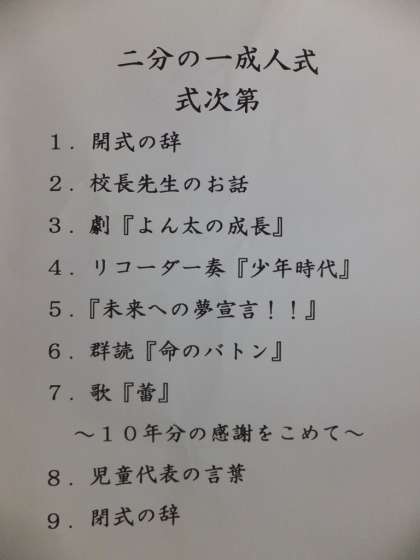 二分の一成人式
式次第
１．開式の辞
２．校長先生のお話
３．劇『よん太の成長』
４．リコーダー奏『少年時代』
５．『未来への夢宣言！！』
６．群読『命のバトン』
７．歌『蕾』
～１０年分の感謝をこめて～
８．児童代表の言葉
９．閉式の辞